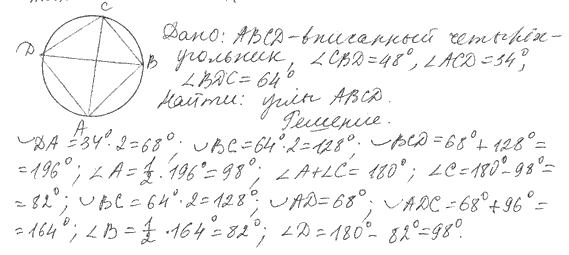 C
Дано: ABCD-вписанный четырёх-
D
угольник, ∠CBD=48°, ∠ACD=34°,
B
∠BDC=64°
Найти: углы ABCD.
A
Решение.
◡DA=34°·2=68°; ◡BC=64°·2=128°; ◡BCD=68°+128°=
=196°; ∠A=1/2·196°=98°; ∠A+∠C=180°; ∠C=180°-98°=
=82°; ◡BC=64°·2=128°; ◡AD=68°; ◡ADC=68°+96°=
=164°; ∠B=1/2·164°=82°; ∠D=180°-82°=98°.